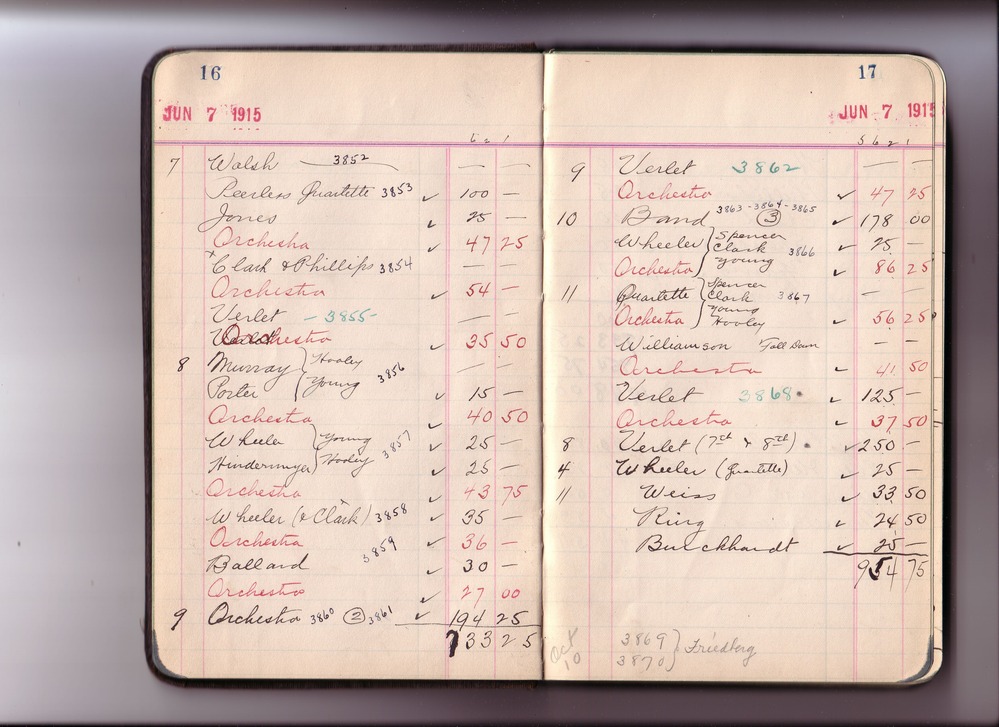 16
JUN 7 1915
7 Walsh 3852 — —
Peerless Quartette 3853 ✓ 100 —
Jones ✓ 25 —
Orchestra ✓ 47 25
Clark & Phillips 3854 — —
Orchestra ✓ 54 —
Verlet - 3855 - — —
Orchestra ✓ 35 50
8 Murray } Hooley 3856 — —
Porter } Young ✓ 15 —
Orchestra ✓ 40 50
Wheeler } Young 3857 ✓ 25 —
Hindermyer } Hooley ✓ 25 —
Orchestra ✓ 43 75
Wheeler (& Clark) 3858 ✓ 35 —
Orchestra ✓ 36 —
Ballard 3859 ✓ 30 —
Orchestra ✓ 27 00
9 Orchestra 3860 (2) 3861 ✓ 194 25
733 25
17
JUN 7 1915
5 6 2 1
9 Verlet 3862 — —
Orchestra ✓ 47 25
10 Band 3863 - 3864 - 3865 (3) ✓ 178 00
Wheeler } Spencer Clark Young 3866 ✓ 25 —
Orchestra ✓ 86 25
11 Quartette } Spencer Clark 3867 — —
Orchestra } Young Hooley ✓ 56 25
Williamson — —
Orchestra ✓ 41 50
Verlet 3868 ✓ 125 —
Orchestra ✓ 37 50
8 Verlet (7th & 8th) ✓ 250 —
4 Wheeler (Quartette) ✓ 25 —
11 Weiss ✓ 33 50
Ring ✓ 24 50
Burckhardt ✓ 25 —
954 75
Oct 10 3869 } Friedberg
3870